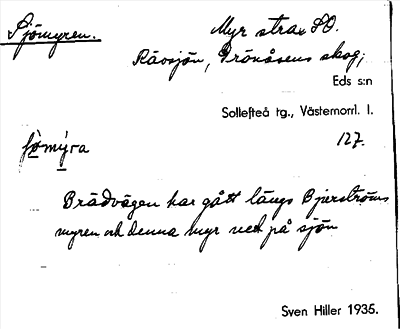 Sjömyren.
Myr strax SO.
Råosjön, Grönåsens skog;
Eds s:n
Sollefteå tg., Västernorrl. l.
127.
Brädvägen har gått längs Bjurströms
myren och denna myr ned på sjön
Sven Hiller 1935.